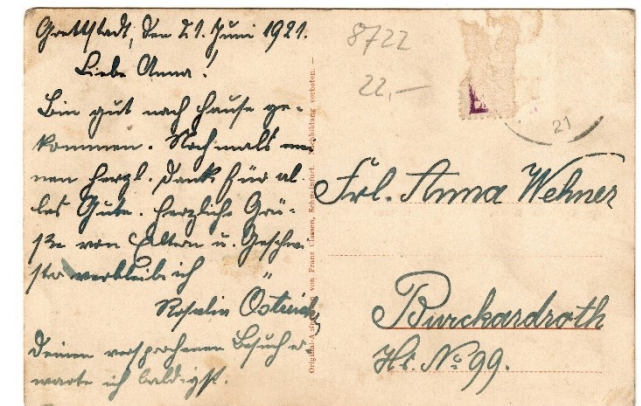 Grettstadt, den 21. Juni 1921.
Liebe Anna!
Bin gut nach Hause ge-
kommen. Nochmals mei-
nen herzl. Dank für al-
les Gute. Herzliche Grü-
ße von Eltern u. Geschwi-
ster verbleibe ich
Rosalin
Deinen versprochenen Besuch er-
warte ich baldigst.
von Franz
Nachbildung verboten.
8722
22,—
21
Frl. Anna Wehner
Burckardroth
Hs. No 99.